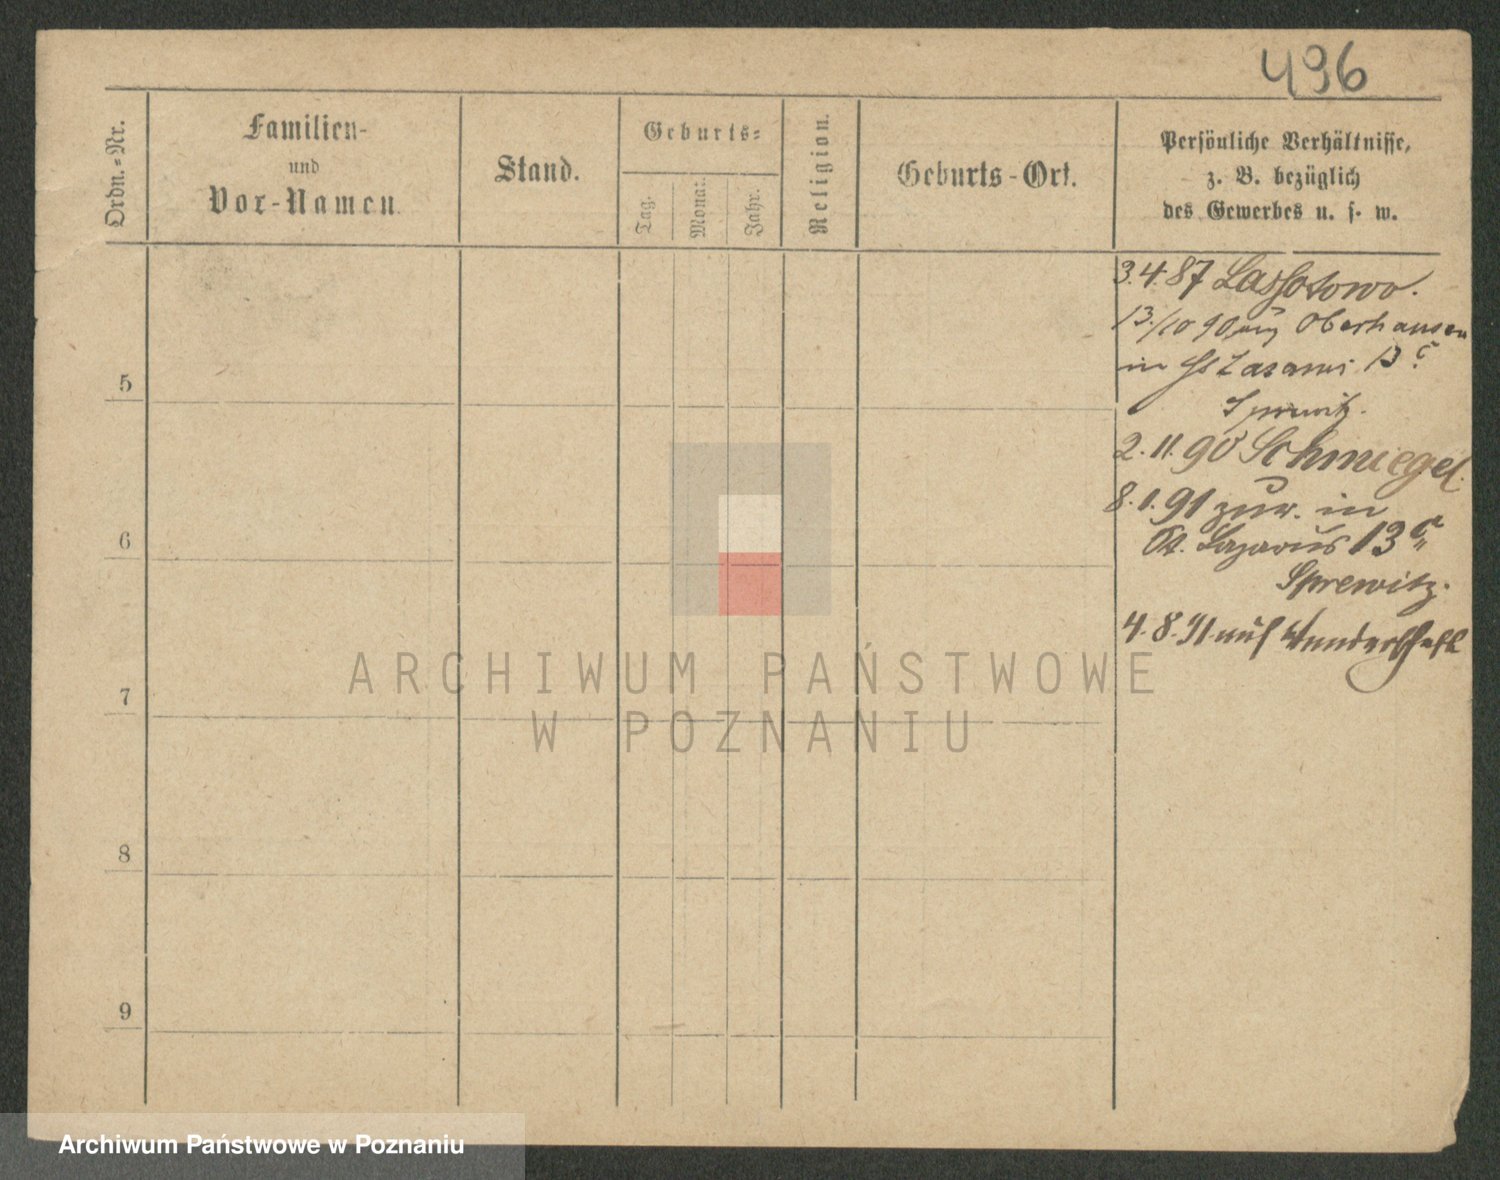 496
Ordn.-Nr.
Familien-
und
Vor-Namen
Stand.
Geburts-
Tag.
Monat.
Jahr.
Religion.
Geburts-Ort.
Persönliche Verhältnisse,
z. B. bezüglich
des Gewerbes u. s. w.
3.4.87 Lassotowo.
13./10 90 Oberhausen
in St Lazarus 13 c.
Sprewitz.
2.11.90 Schmiegel.
8.1.91 zur. in
St. Lazarus 13 c
Sprewitz.
4.8.91 auf Wanderschaft
5
6
7
8
9
ARCHIWUM PAŃSTWOWE
W POZNANIU
Archiwum Państwowe w Poznaniu